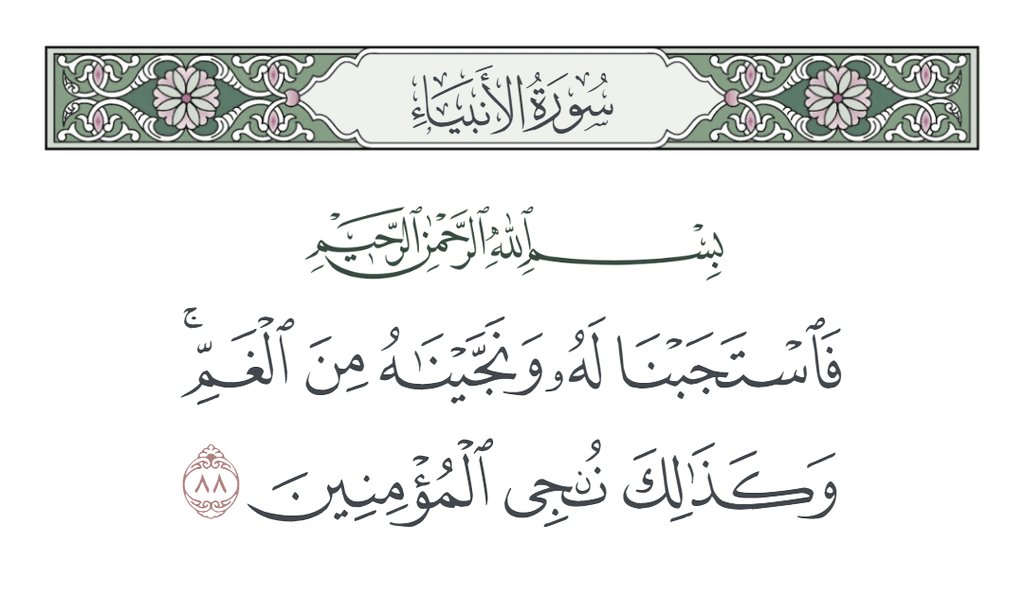 سُورَةُ الأَنبِيَاءِ
بِسْمِ ٱللَّهِ ٱلرَّحْمَٰنِ ٱلرَّحِيمِ
فَٱسْتَجَبْنَا لَهُۥ وَنَجَّيْنَٰهُ مِنَ ٱلْغَمِّ ۚ
وَكَذَٰلِكَ نُـۨجِى ٱلْمُؤْمِنِينَ ٨٨